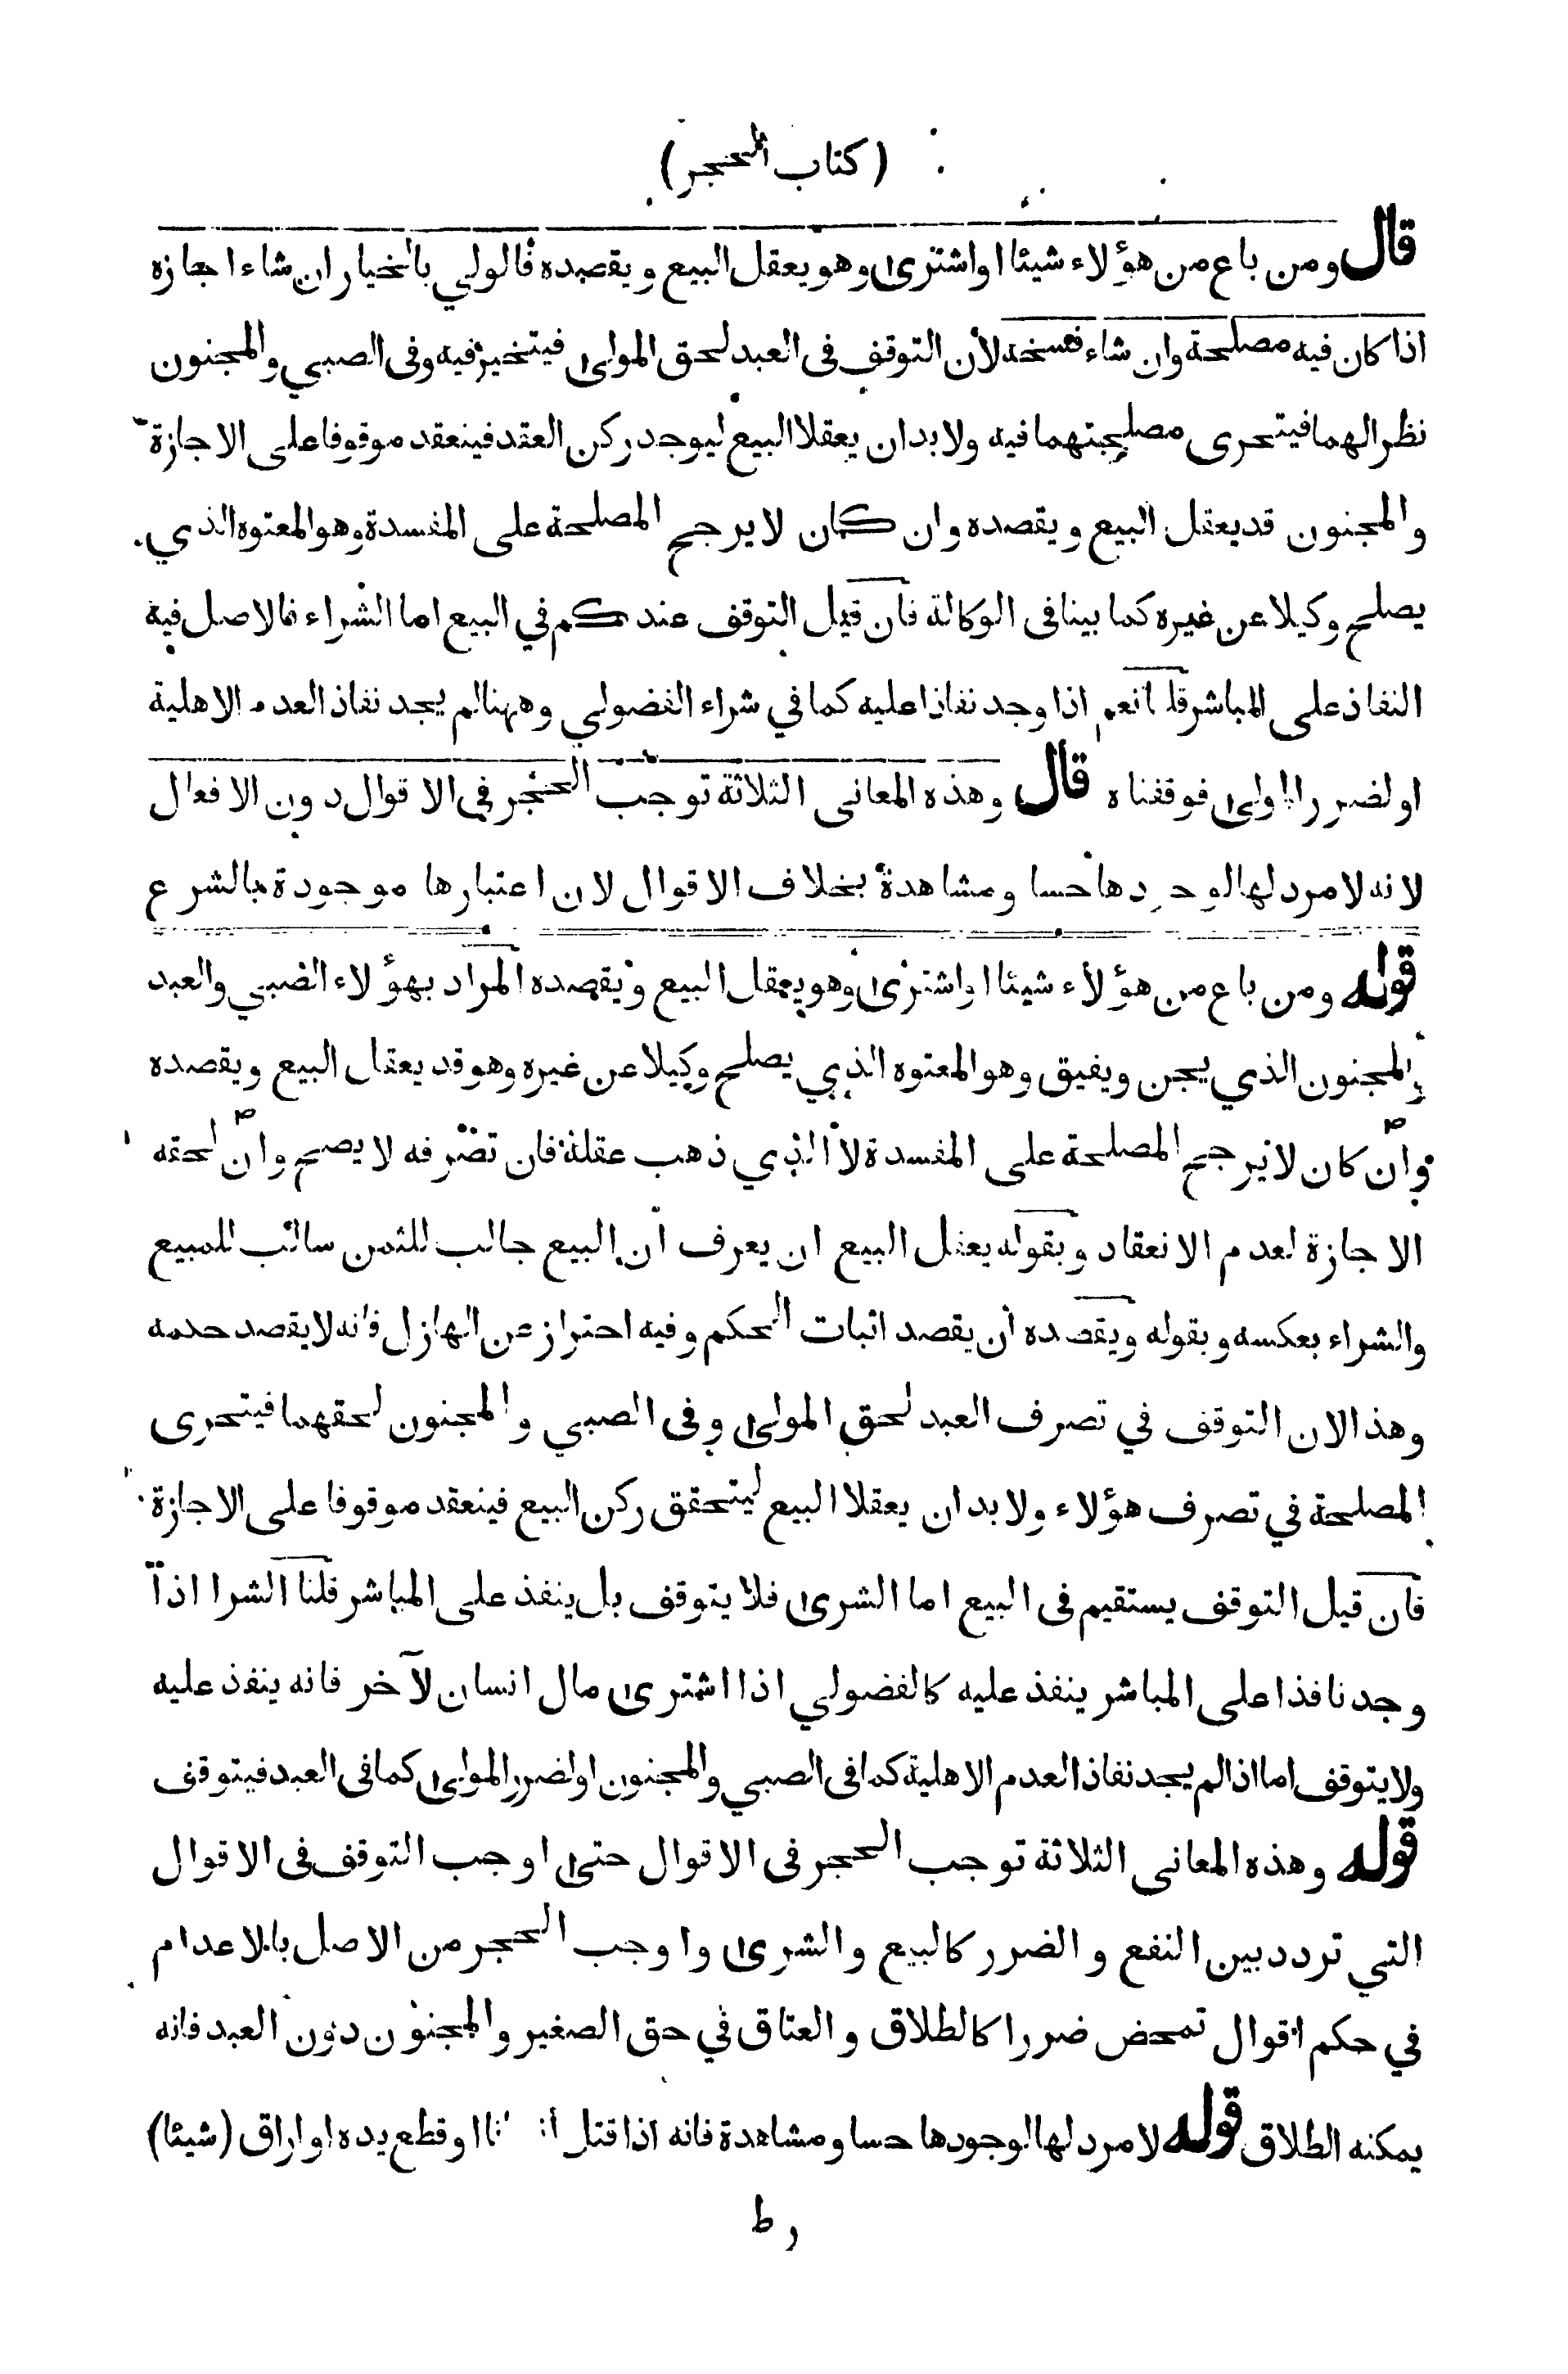 (كتاب الحجر)
قال ومن باع من هؤلاء شيئا او اشترى وهو يعقل البيع ويقصده فالولي بالخيار ان شاء اجازه
اذا كان فيه مصلحة وان شاء فسخه لأن التوقف فى العبد لحق المولى فيتخير فيه وفى الصبي والمجنون
نظر الهما فيتحرى مصلحتهما فيه ولا بد ان يعقلا البيع ليوجد ركن العقد فينعقد موقوفا على الاجازة
والمجنون قد يعقل البيع ويقصده وان كان لا يرجح المصلحة على المفسدة وهو المعتوه الذي
يصلح وكيلا عن غيره كما بينا فى الوكالة فان قيل التوقف عندكم في البيع اما الشراء فالاصل فيه
النفاذ على المباشر قلنا نعم اذا وجد نفاذا عليه كما في شراء الفضولي وههنا لم يجد نفاذا لعدم الاهلية
او لضرر المولى فوقفناه قال وهذه المعانى الثلاثة توجب الحجر في الاقوال دون الافعال
لانه لا مرد لها لوجودها حسا ومشاهدة بخلاف الاقوال لان اعتبارها موجودة بالشرع
قوله ومن باع من هؤلأء شيئا او اشترى وهو يعقل البيع ويقصده المراد بهؤلاء الصبي والعبد
والمجنون الذي يجن ويفيق وهو المعتوه الذي يصلح وكيلا عن غيره وهو قد يعقل البيع ويقصده
وان كان لا يرجح المصلحة على المفسدة لا الذي ذهب عقله فان تصرفه لا يصح وان لحقه
الاجازة لعدم الانعقاد وبقوله يعقل البيع ان يعرف ان البيع جالب للثمن سالب للمبيع
والشراء بعكسه وبقوله ويقصده ان يقصد اثبات الحكم وفيه احتراز عن الهازل فانه لا يقصد حكمه
وهذا لان التوقف في تصرف العبد لحق المولى وفى الصبي والمجنون لحقهما فيتحرى
المصلحة في تصرف هؤلاء ولا بد ان يعقلا البيع ليتحقق ركن البيع فينعقد موقوفا على الاجازة
فان قيل التوقف يستقيم فى البيع اما الشرى فلا يتوقف بل ينفذ على المباشر قلنا الشرا اذا
وجد نافذا على المباشر ينفذ عليه كالفضولي اذا اشترى مال انسان لآخر فانه ينفذ عليه
ولا يتوقف اما اذا لم يجد نفاذا لعدم الاهلية كما فى الصبي والمجنون او لضرر المولى كما فى العبد فيتوقف
قوله وهذه المعانى الثلاثة توجب الحجر فى الاقوال حتى اوجب التوقف فى الاقوال
التي تردد بين النفع والضرر كالبيع والشرى واوجب الحجر من الاصل بالاعدام
في حكم اقوال تمحض ضررا كالطلاق والعتاق في حق الصغير والمجنون دون العبد فانه
يمكنه الطلاق قوله لا مرد لها لوجودها حسا ومشاهدة فانه اذا قتل او قطع يده او اراق (شيئا)